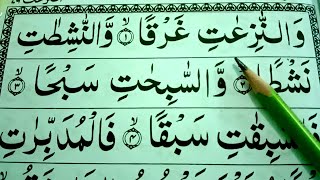 وَالنّٰزِعٰتِ غَرْقًا ۙ﴿۱﴾ وَّالنّٰشِطٰتِ
نَشْطًا ۙ﴿۲﴾ وَّالسّٰبِحٰتِ سَبْحًا ۙ﴿۳﴾
فَالسّٰبِقٰتِ سَبْقًا ۙ﴿۴﴾ فَالْمُدَبِّرٰتِ